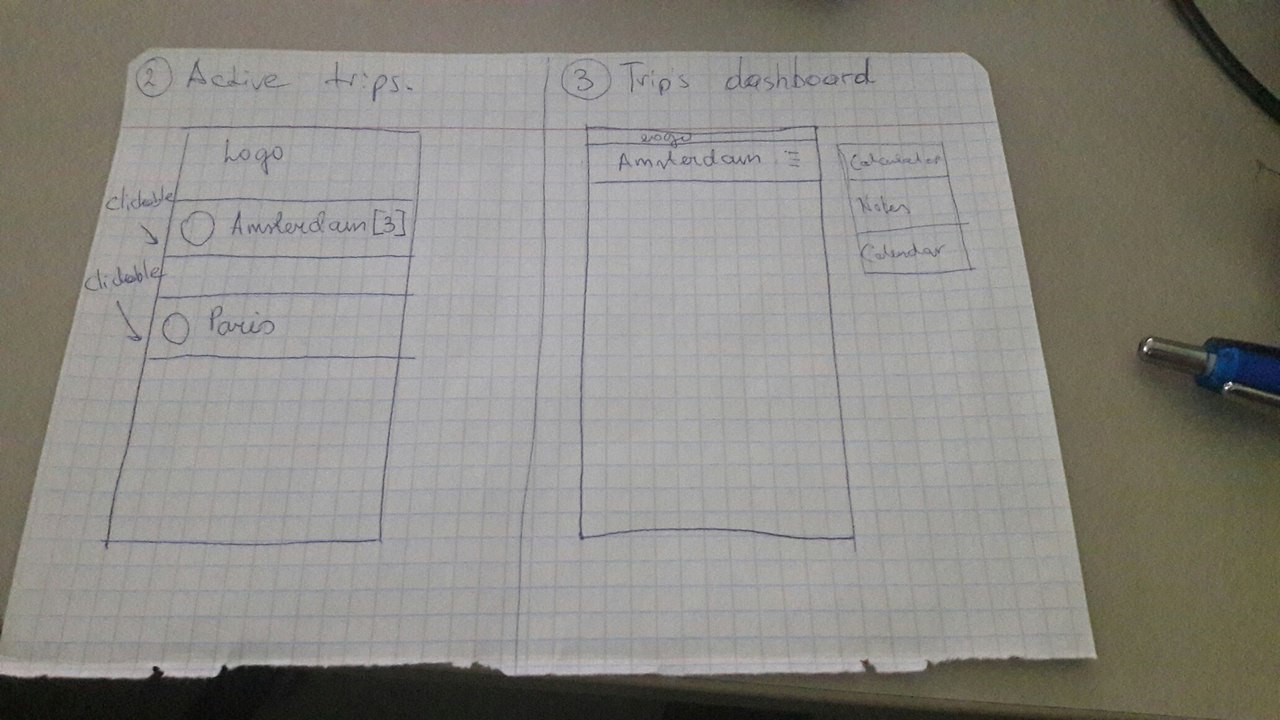 ② Active trips.
Logo
clickable
Amsterdam [3]
clickable
Paris
③ Trip's dashboard
Logo
Amsterdam
Calculator
Notes
Calendar